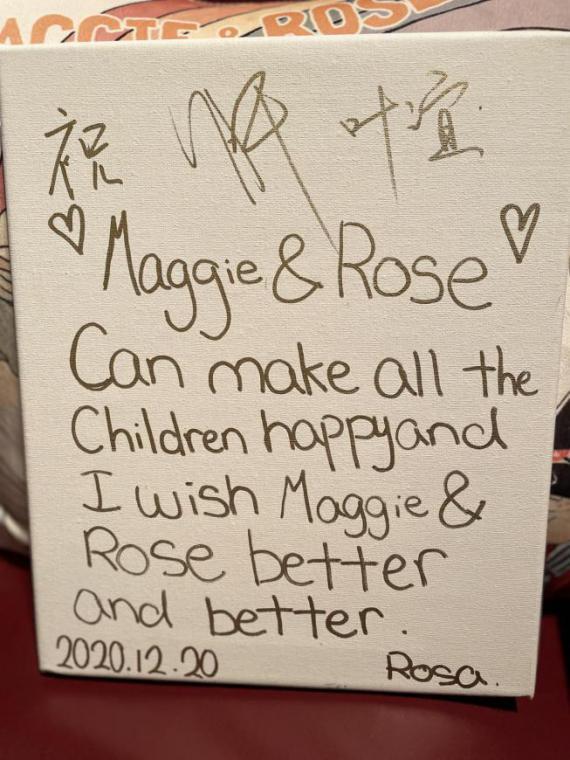 MAGGIE & ROSE
祝
叶宣
♡ Maggie & Rose ♡
Can make all the
Children happy and
I wish Maggie &
Rose better
and better.
2020.12.20 Rosa.